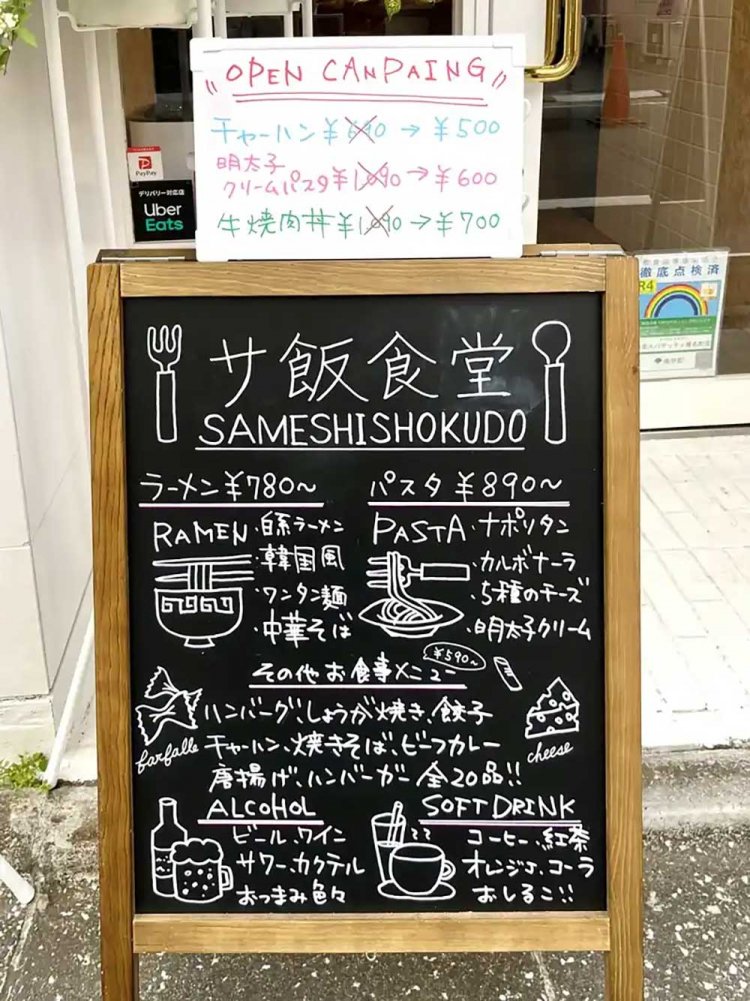 "OPEN CANPAING"
チャーハン ¥690 → ¥500
明太子
クリームパスタ ¥1,090 → ¥600
牛焼肉丼 ¥1,090 → ¥700
PayPay
デリバリー対応店
Uber
Eats
徹底点検済
R4
サ飯食堂
SAMESHISHOKUDO
ラーメン ¥780~
パスタ ¥890~
RAMEN
・白系ラーメン
・韓国風
・ワンタン麺
・中華そば
PASTA
・ナポリタン
・カルボナーラ
・5種のチーズ
・明太子クリーム
¥590~
その他お食事メニュー
ハンバーグ、しょうが焼き、餃子
チャーハン、焼きそば、ビーフカレー
唐揚げ、ハンバーガー 全20品!!
farfalle
cheese
ALCOHOL
ビール、ワイン
サワー、カクテル
おつまみ色々
SOFT DRINK
コーヒー、紅茶
オレンジJ、コーラ
おしるこ!!